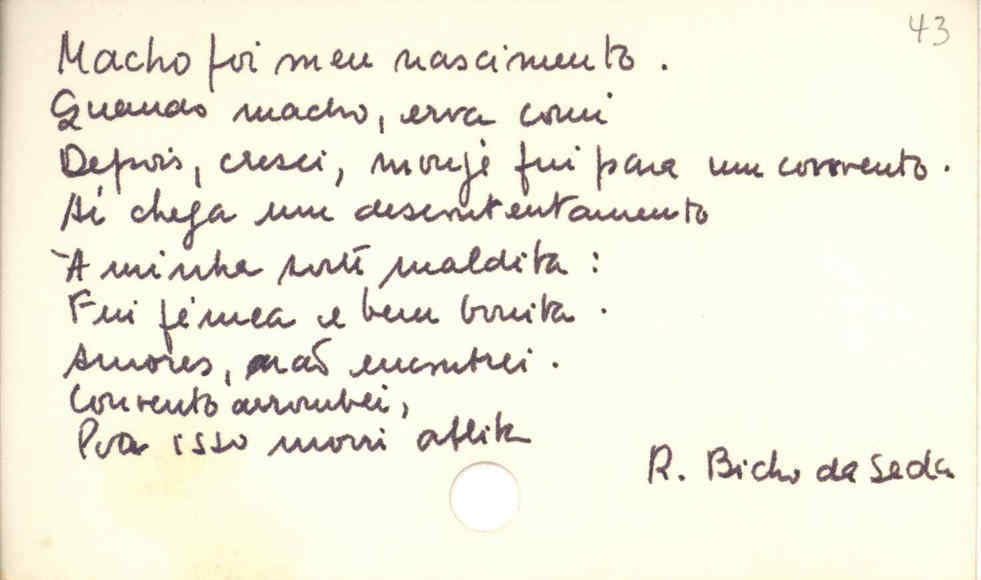 43
Macho foi meu nascimento.
Quando macho, erva comi
Depois, cresci, monje fui para um convento.
Aí chega um descontentamento
À minha sorte maldita:
Fui fêmea e bem bonita.
Amores, não encontrei.
Convento arrombei,
Por isso morri aflita
R. Bicho da Seda